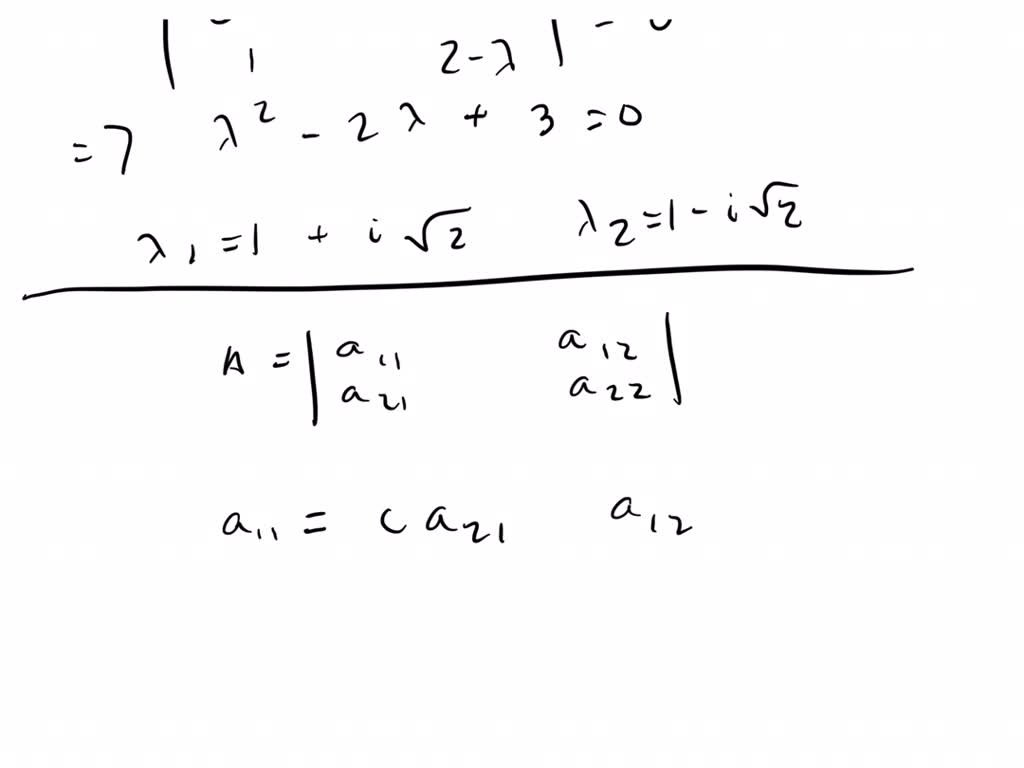 | 1 2-λ | = 0
=7 λ² - 2λ + 3 = 0
λ₁ = 1 + i√2 λ₂ = 1 - i√2
A = | a₁₁ a₁₂ |
a₂₁ a₂₂
a₁₁ = c a₂₁ a₁₂